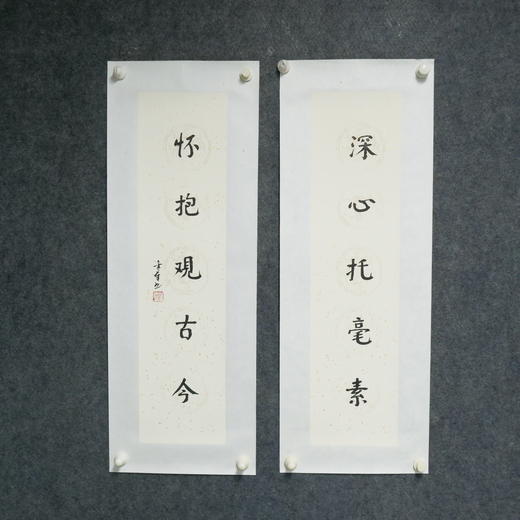 深心托毫素
怀抱观古今